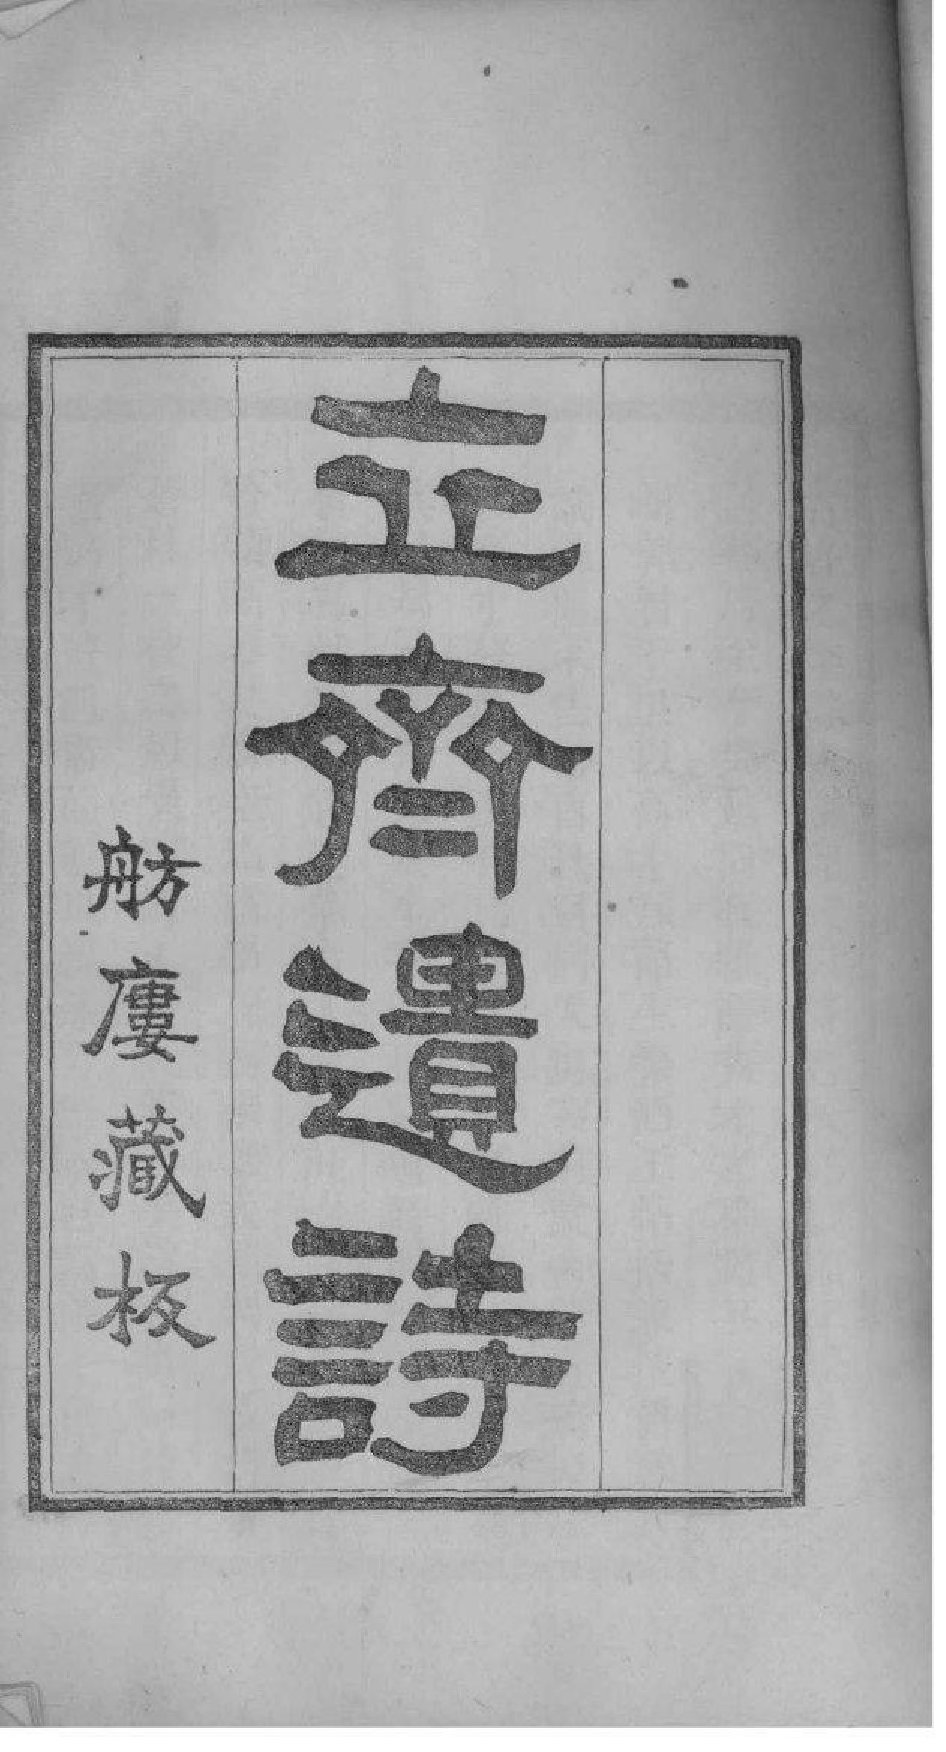 立齊遺詩
舫廔藏板